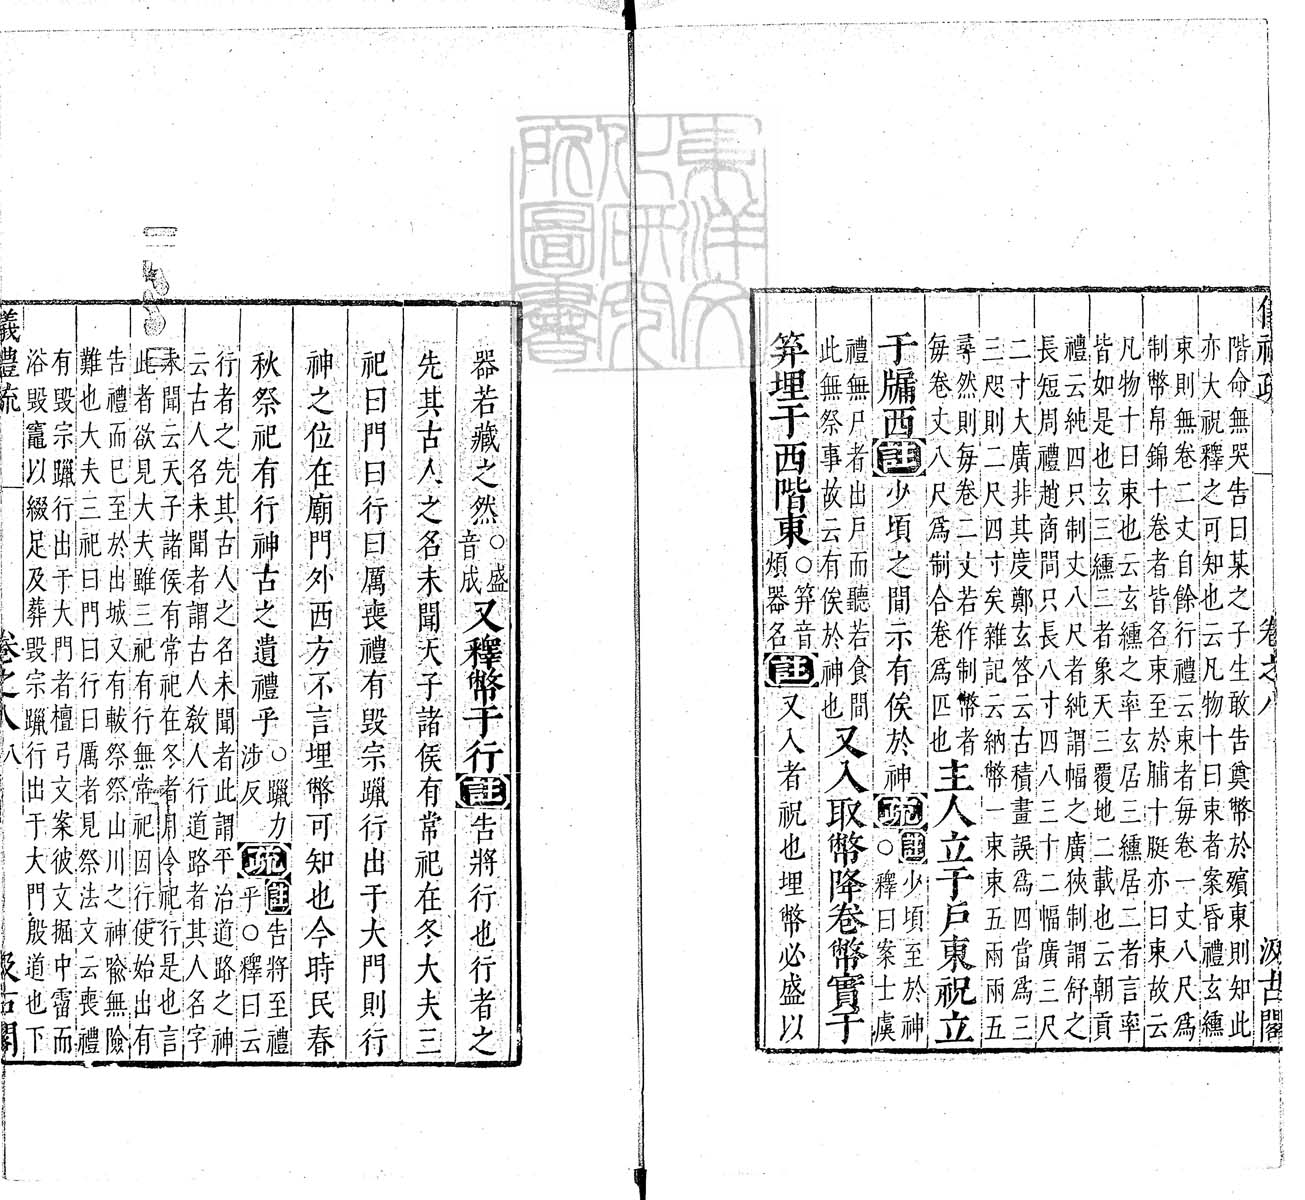 儀禮疏 卷之八 汲古閣
階命無哭告曰某之子生敢告奠幣於殯東則知此
亦大祝釋之可知也云凡物十曰束者案昏禮玄纁
束則無卷二丈自餘行禮云束者每卷一丈八尺爲
制幣帛錦十卷者皆名束至於脯十脡亦曰束故云
凡物十曰束也云玄纁之率玄居三纁居二者言率
皆如是也玄三纁二者象天三覆地二載也云朝貢
禮云純四只制丈八尺者純謂幅之廣狹制謂舒之
長短周禮趙商問只長八寸四八三十二幅廣三尺
二寸大廣非其度鄭玄答云古積畫誤爲四當爲三
三咫則二尺四寸矣雜記云納幣一束束五兩兩五
尋然則每卷二丈若作制幣者
每卷丈八尺爲制合卷爲匹也
主人立于戶東祝立
于牖西註少頃之間示有俟於神疏
註少頃至於神
○釋曰案士虞
禮無尸者出戶而聽若食間
此無祭事故云有俟於神也
又入取幣降卷幣實于
筓埋于西階東
○筓音
煩器名
註又入者祝也埋幣必盛以
器若藏之然
○盛
音成
又釋幣于行註告將行也行者之
先其古人之名未聞天子諸侯有常祀在冬大夫三
祀曰門曰行曰厲喪禮有毀宗躐行出于大門則行
神之位在廟門外西方不言埋幣可知也今時民春
秋祭祀有行神古之遺禮乎
○躐力
涉反
疏
註告將至禮
乎○釋曰云
行者之先其古人之名未聞者此謂平治道路之神
云古人名未聞者謂古人教人行道路者其人名字
未聞云天子諸侯有常祀在冬者月令祀行是也言
此者欲見大夫雖三祀有行無常祀因行使始出有
告禮而已至於出城又有軷祭祭山川之神喩無險
難也大夫三祀曰門曰行曰厲者見祭法文云喪禮
有毀宗躐行出于大門者檀弓文案彼文掘中霤而
浴毀竈以綴足及葬毀宗躐行出于大門殷道也下
儀禮疏 卷之八 八 汲古閣
東洋文化研究所圖書